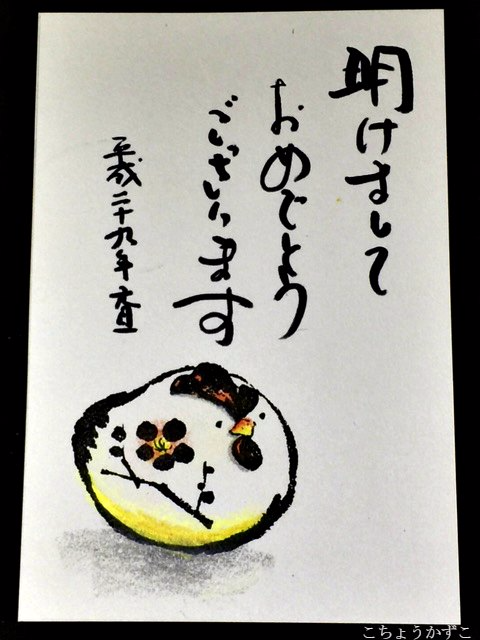 明けまして
おめでとう
ございます
平成二十九年 元旦
こちょうかずこ